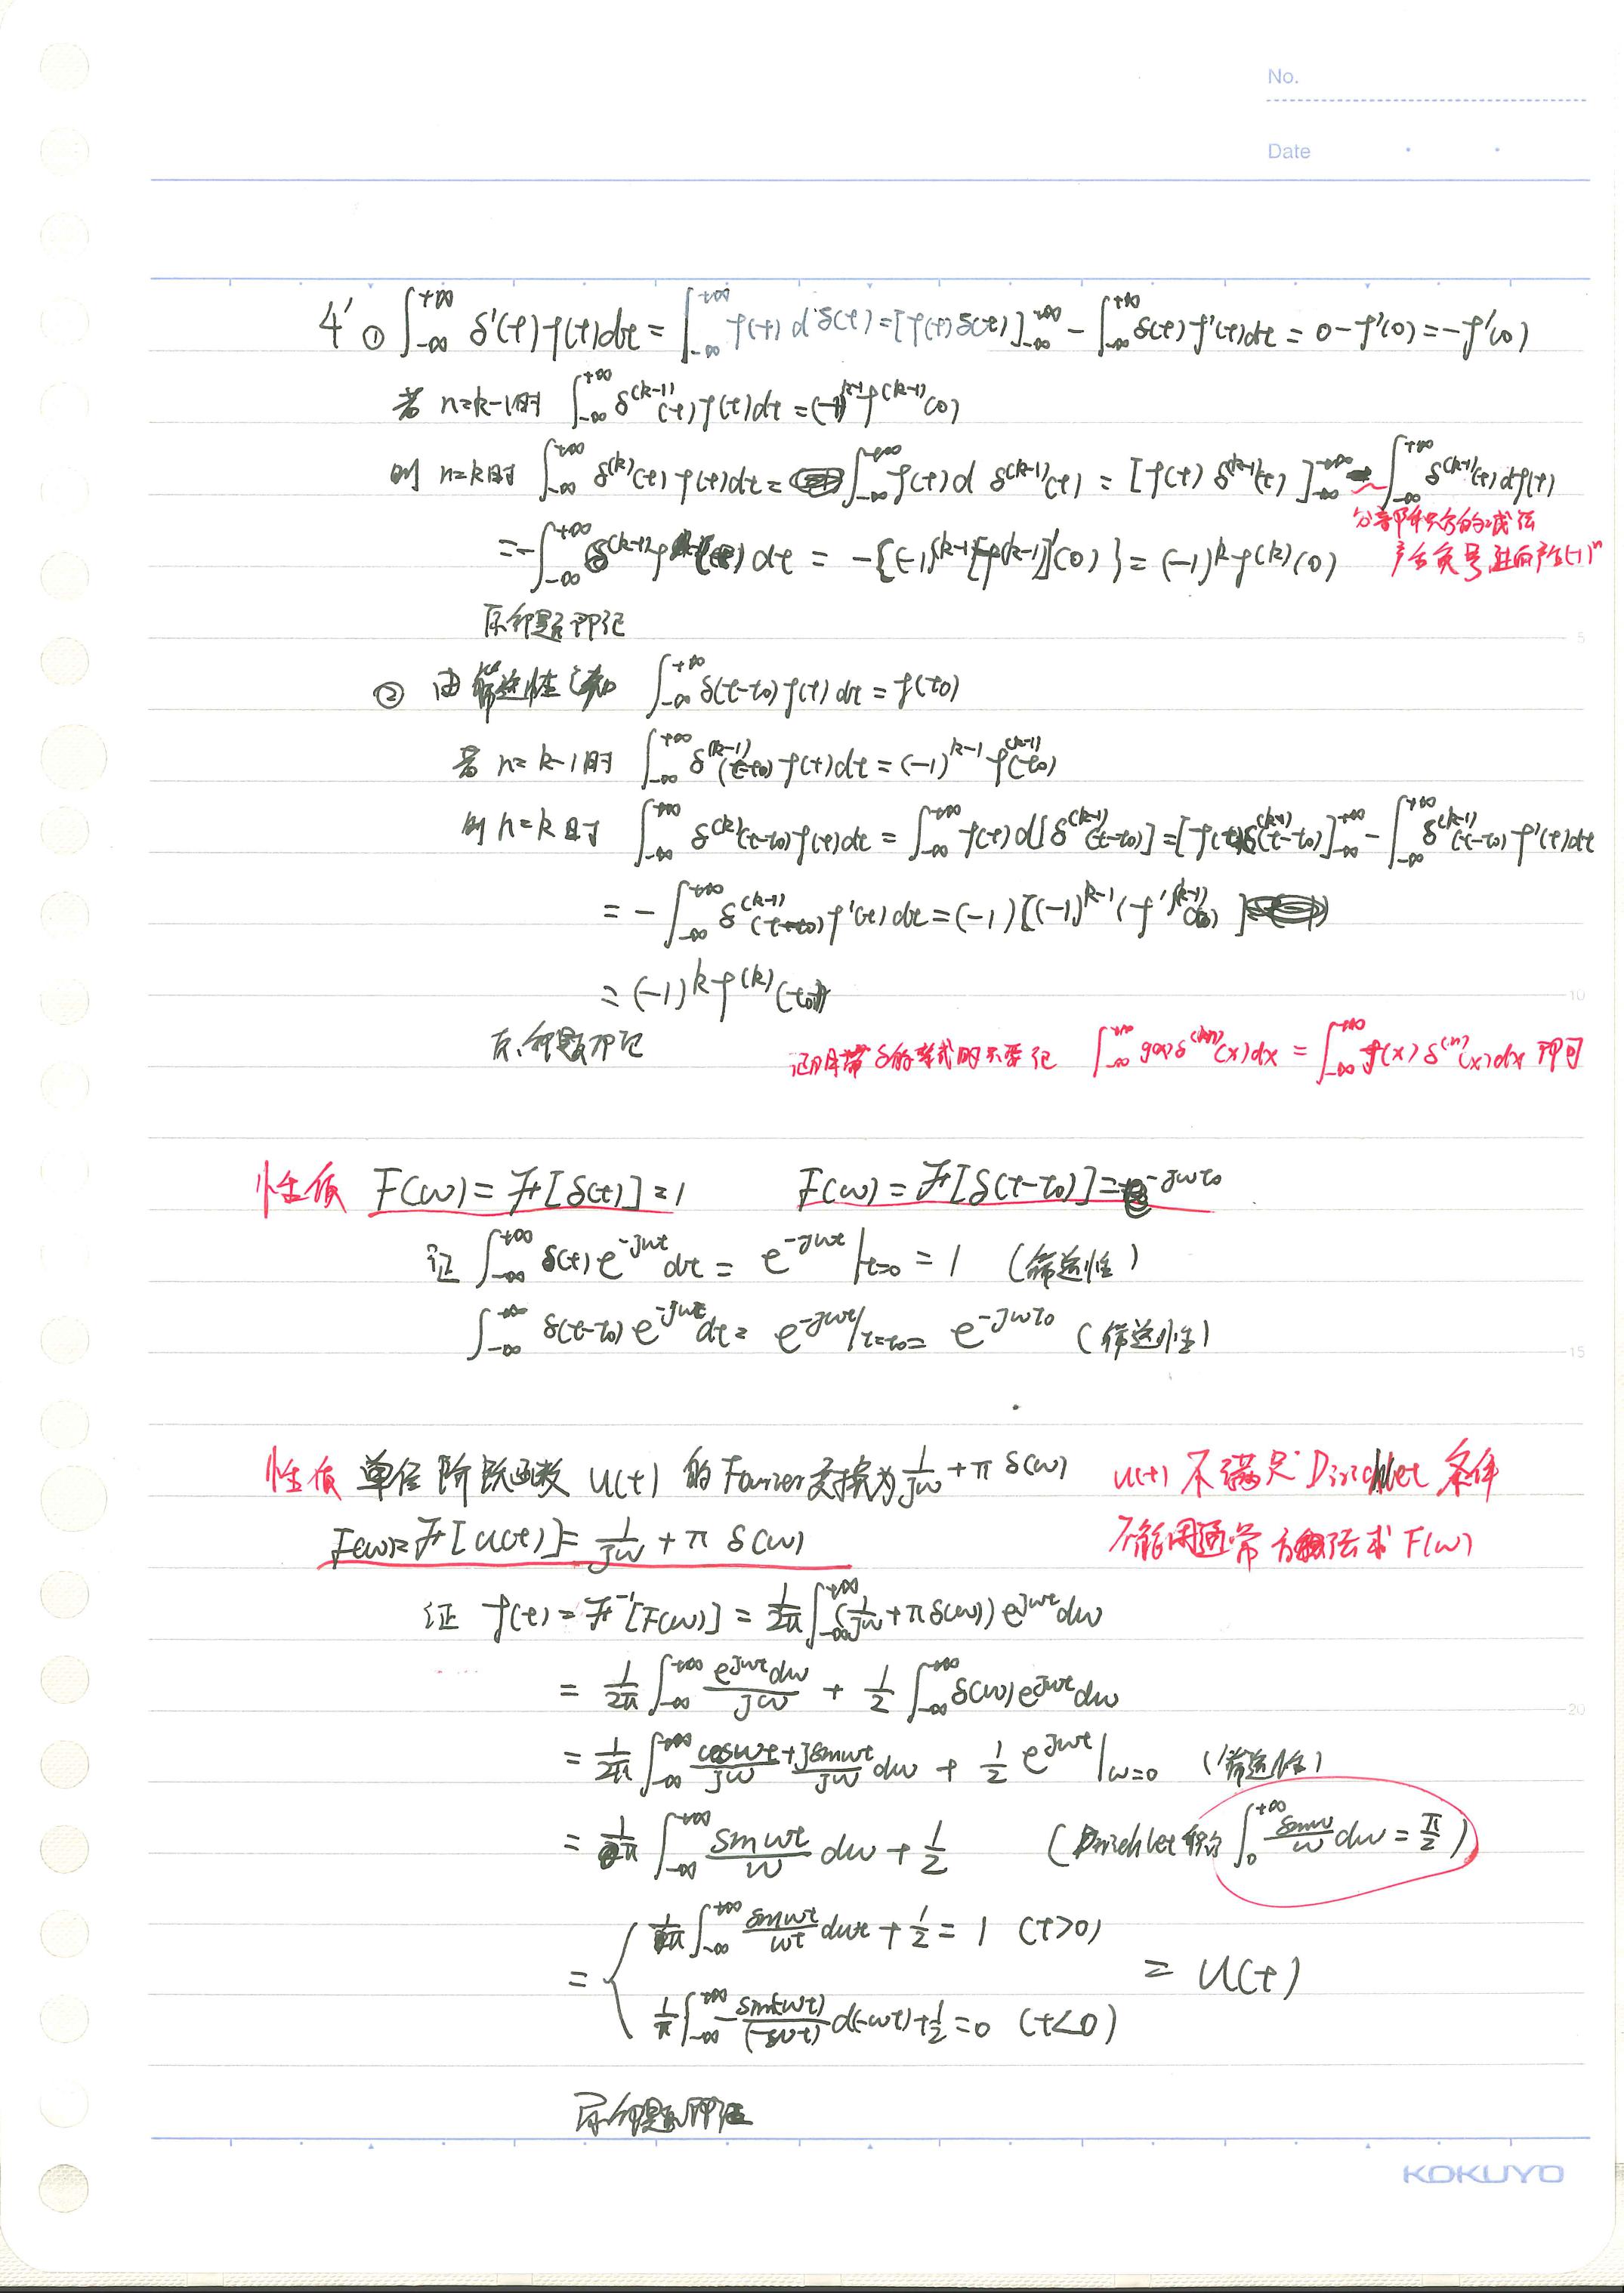 No.
Date
4' ① ∫_{-∞}^{+∞} δ'(t) f(t)dt = ∫_{-∞}^{+∞} f(t) d δ(t) = [f(t) δ(t)]_{-∞}^{+∞} - ∫_{-∞}^{+∞} δ(t) f'(t)dt = 0 - f'(0) = -f'(0)
若 n=k-1时 ∫_{-∞}^{+∞} δ^{(k-1)}(t) f(t)dt = (-1)^{k-1} f^{(k-1)}(0)
则 n=k时 ∫_{-∞}^{+∞} δ^{(k)}(t) f(t)dt = ∫_{-∞}^{+∞} f(t) d δ^{(k-1)}(t) = [f(t) δ^{(k-1)}(t)]_{-∞}^{+∞} - ∫_{-∞}^{+∞} δ^{(k-1)}(t) df(t)
分部积分的减法
= -∫_{-∞}^{+∞} δ^{(k-1)} f'(t) dt = -{(-1)^{k-1}[f^{(k-1)}]'(0)} = (-1)^k f^{(k)}(0)
产生负号 进而产生(-1)^n
原命题即证
② 由筛选性知 ∫_{-∞}^{+∞} δ(t-t₀) f(t) dt = f(t₀)
若 n=k-1时 ∫_{-∞}^{+∞} δ^{(k-1)}(t-t₀) f(t)dt = (-1)^{k-1} f^{(k-1)}(t₀)
则 n=k时 ∫_{-∞}^{+∞} δ^{(k)}(t-t₀) f(t)dt = ∫_{-∞}^{+∞} f(t) d[δ^{(k-1)}(t-t₀)] = [f(t)δ^{(k-1)}(t-t₀)]_{-∞}^{+∞} - ∫_{-∞}^{+∞} δ^{(k-1)}(t-t₀) f'(t)dt
= -∫_{-∞}^{+∞} δ^{(k-1)}(t-t₀) f'(t) dt = (-1)[(-1)^{k-1}(f')^{(k-1)}(t₀)]
= (-1)^k f^{(k)}(t₀)
原命题即证
证明带δ的等式时只要证 ∫_{-∞}^{+∞} g(x)δ^{(n)}(x)dx = ∫_{-∞}^{+∞} f(x) δ^{(n)}(x)dx 即可
性质 F(ω) = ℱ[δ(t)] = 1 F(ω) = ℱ[δ(t-t₀)] = e^{-jωt₀}
证 ∫_{-∞}^{+∞} δ(t) e^{-jωt} dt = e^{-jωt}|_{t=0} = 1 (筛选性)
∫_{-∞}^{+∞} δ(t-t₀) e^{-jωt} dt = e^{-jωt}|_{t=t₀} = e^{-jωt₀} (筛选性)
性质 单位阶跃函数 u(t) 的Fourier变换为 1/(jω) + π δ(ω) u(t) 不满足 Dirichlet 条件
F(ω) = ℱ[u(t)] = 1/(jω) + π δ(ω) 不能用通常方法求 F(ω)
证 f(t) = ℱ^{-1}[F(ω)] = 1/(2π) ∫_{-∞}^{+∞} (1/(jω) + πδ(ω)) e^{jωt} dω
= 1/(2π) ∫_{-∞}^{+∞} e^{jωt}dω/(jω) + 1/2 ∫_{-∞}^{+∞} δ(ω) e^{jωt} dω
= 1/(2π) ∫_{-∞}^{+∞} cosωt/(jω) + jsinωt/(jω) dω + 1/2 e^{jωt}|_{ω=0} (筛选性)
= 1/(2π) ∫_{-∞}^{+∞} sinωt/ω dω + 1/2 (Dirichlet积分 ∫_0^{+∞} sinω/ω dω = π/2)
= { 1/(2π) ∫_{-∞}^{+∞} sinωt/(ωt) dωt + 1/2 = 1 (t>0)
1/π ∫_{-∞}^{+∞} -sin(-ωt)/(-ωt) d(-ωt) + 1/2 = 0 (t<0)
= u(t)
原命题即证
5
10
15
20
KOKUYO